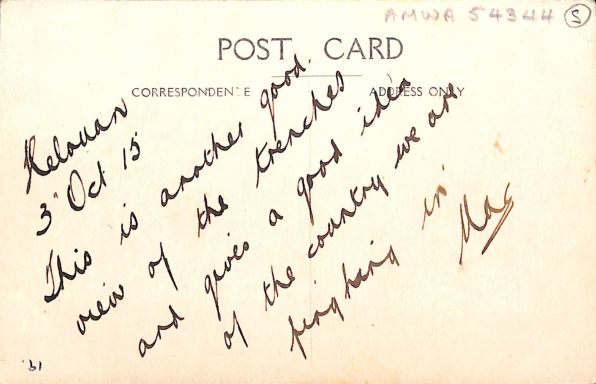 AMWA 54344 S
POST CARD
CORRESPONDENCE
ADDRESS ONLY
Helouan
3 Oct 15
This is another good
view of the trenches
and gives a good idea
of the country we are
fighting in
Mac